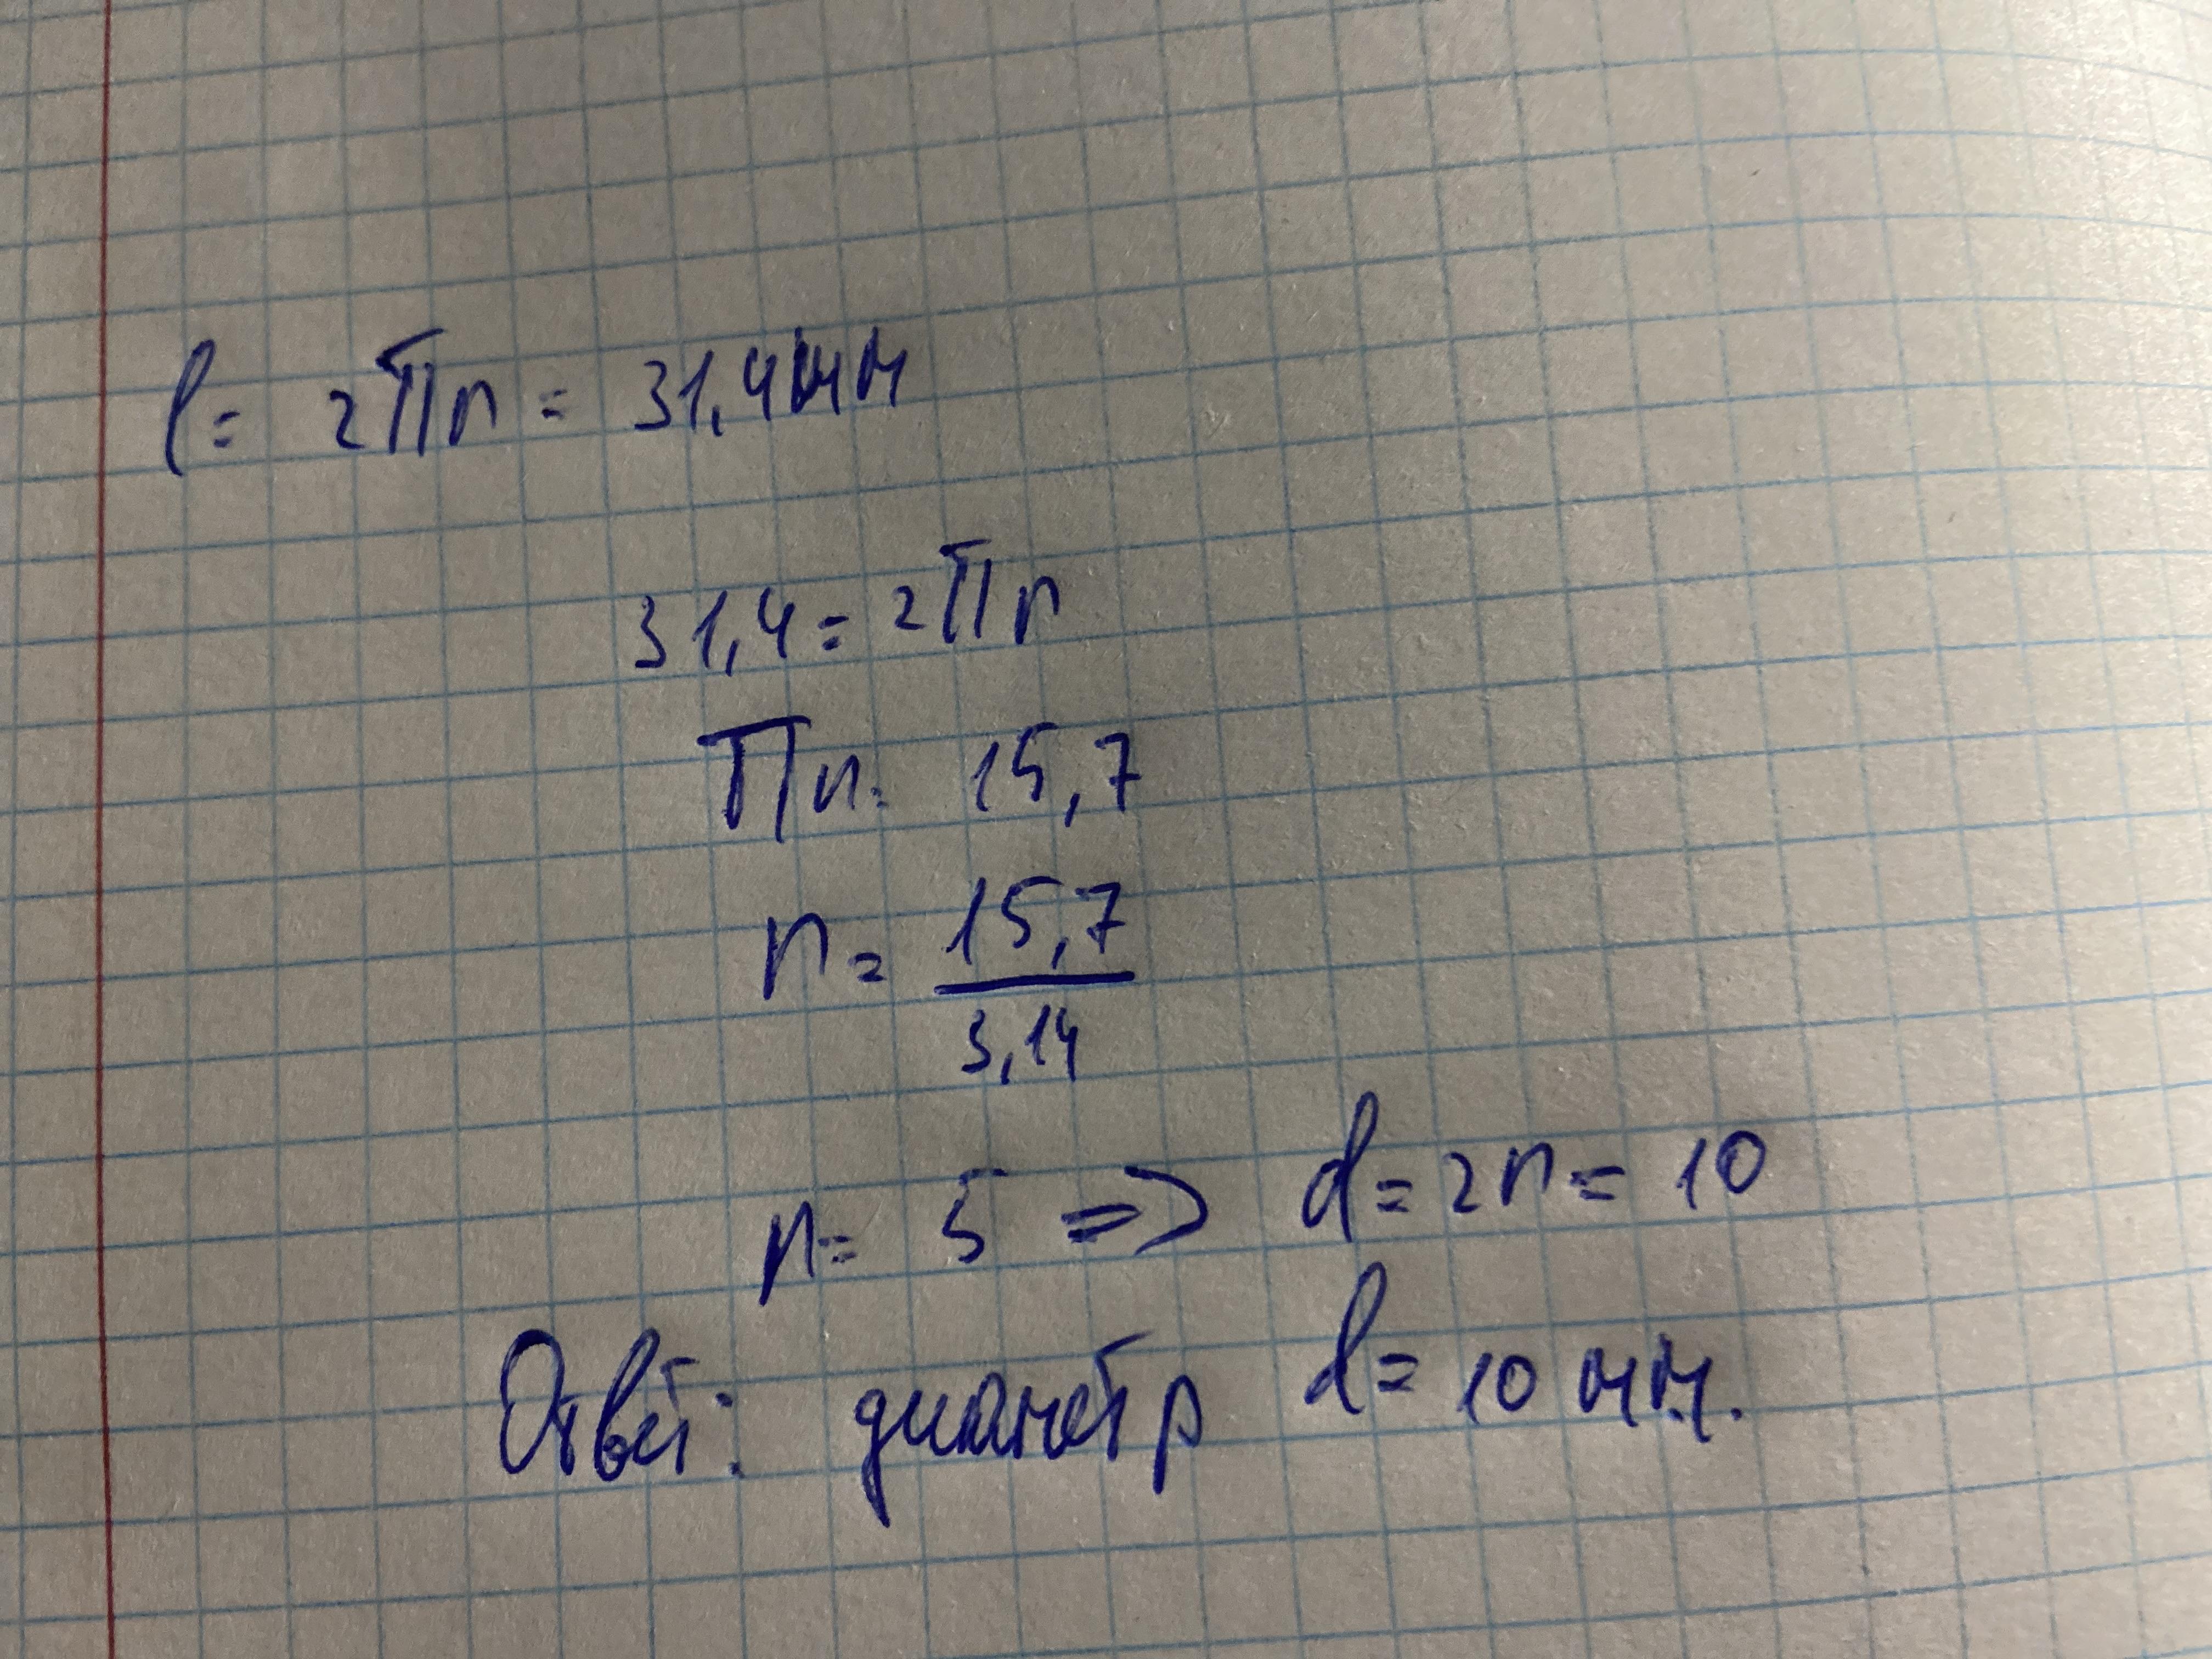 l = 2πr = 31,4мм
31,4 = 2πr
πr = 15,7
r = 15,7 / 3,14
r = 5 => d = 2r = 10
Ответ: диаметр d = 10 мм.